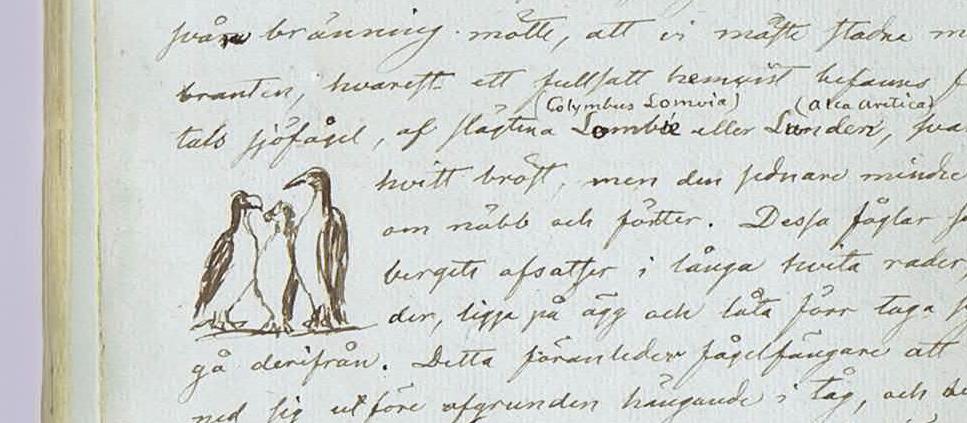 svåra bränning mötte, att vi måste stadna
branten, hvarest ett fullsatt hemvist befanns
(Colymbus Lomvia) (Alca arctica)
tals sjöfågel, af slägtena Lombie eller Lunderi,
hvitt bröst, men den sednare mindre
om näbb och fötter. Dessa foglar
bergets afsattser i långa hvita rader,
der, ligga på ägg och låta förr taga
gå derifrån. Detta föranleder fågelfängare att
ned sig utföre afgrunden hängande i tåg, och